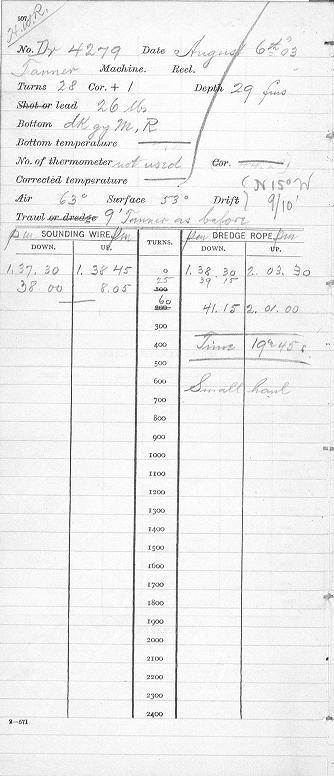 507.
H.W.R.
No. Dr 4279 Date August 6th 03
Tanner Machine. Reel.
Turns 28 Cor. + 1 Depth 29 fms
Shot or lead 26 lb
Bottom dk gy M, R
Bottom temperature
No. of thermometer not used Cor.
Corrected temperature
Air 63° Surface 53° Drift { N 15° W 9/10'
Trawl or dredge 9' Tanner as before
pm SOUNDING WIRE. pm TURNS. pm DREDGE ROPE. pm
DOWN. UP. DOWN. UP.
1.37.30 1.38 45 0 1.38.30 2.03.30
38 00 8.05 25 100 39 15
60 200 41.15 2.01.00
300
400 Time 19m 45s
500
600 Small haul
700
800
900
1000
1100
1200
1300
1400
1500
1600
1700
1800
1900
2000
2100
2200
2300
2400
2—571